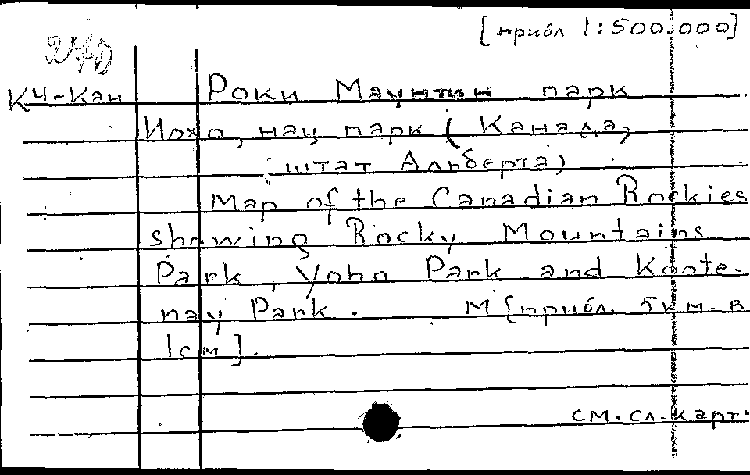 [прибл 1:500.000]
КЧ-Кан Роки Маунтин парк
Йохо, нац парк (Канада,
штат Альберта)
Map of the Canadian Rockies
showing Rocky Mountains
Park, Yoho Park and Koote-
nay Park. М [прибл. 5км. в
1см].
см. сл. карт.